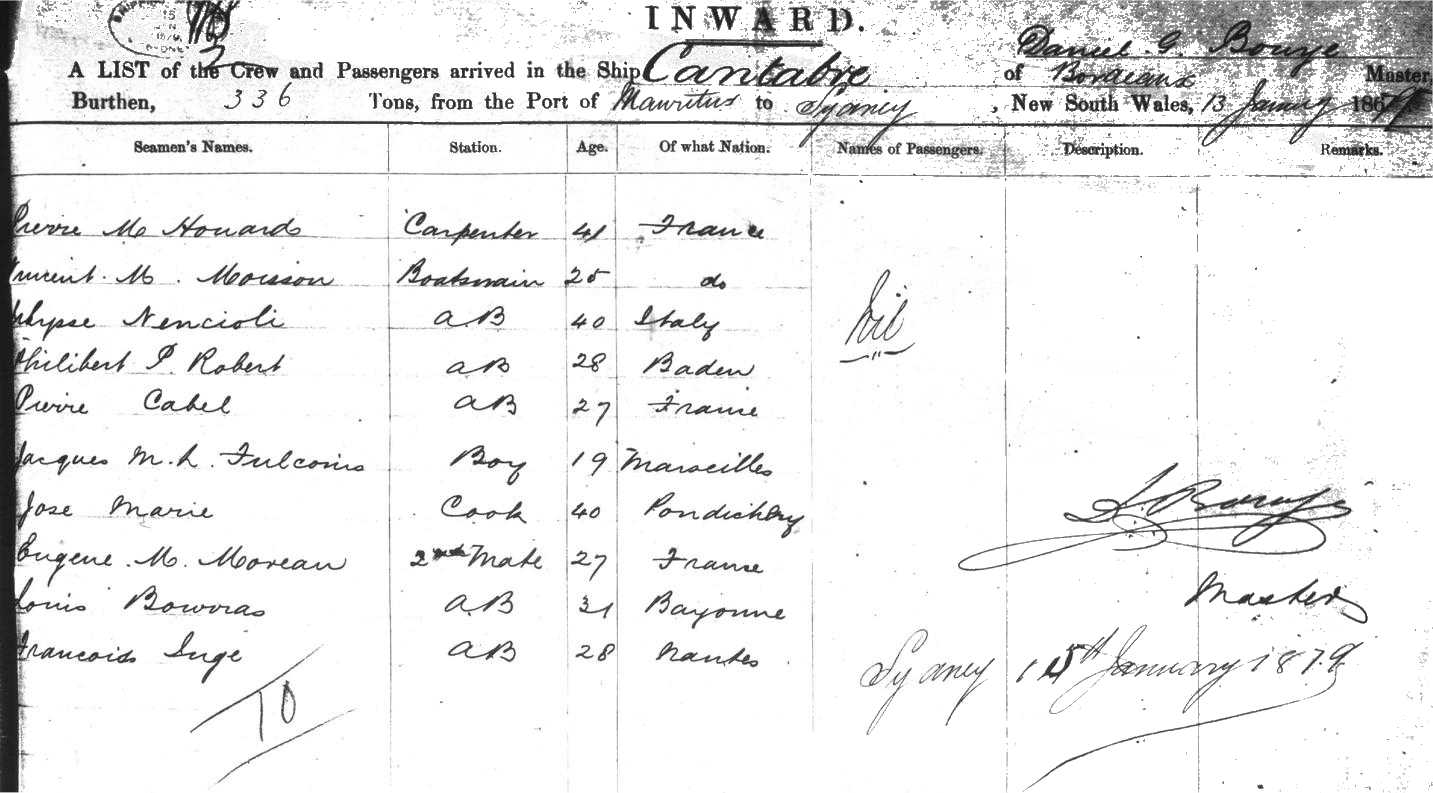 INWARD.
Daniel G Bouye
A LIST of the Crew and Passengers arrived in the Ship Cantabre of Bordeaux Master,
Burthen, 336 Tons, from the Port of Mauritius to Sydney, New South Wales, 13 January 1879
Seamen's Names. Station. Age. Of what Nation. Names of Passengers. Description. Remarks.
Pierre M Houard Carpenter 41 France
Vincent M. Moisson Boatswain 25 do
Ulysse Nencioli AB 40 Italy Nil
Philibert P. Robert AB 28 Baden
Pierre Cabel AB 27 France
Jacques M. L. Fulconis Boy 19 Marseilles
Jose Marie Cook 40 Pondichery
D. Bouye
Eugene M. Moreau 2nd Mate 27 France
Master
Louis Bowras AB 31 Bayonne
Francois Inge AB 28 Nantes
Sydney 15th January 1879
10